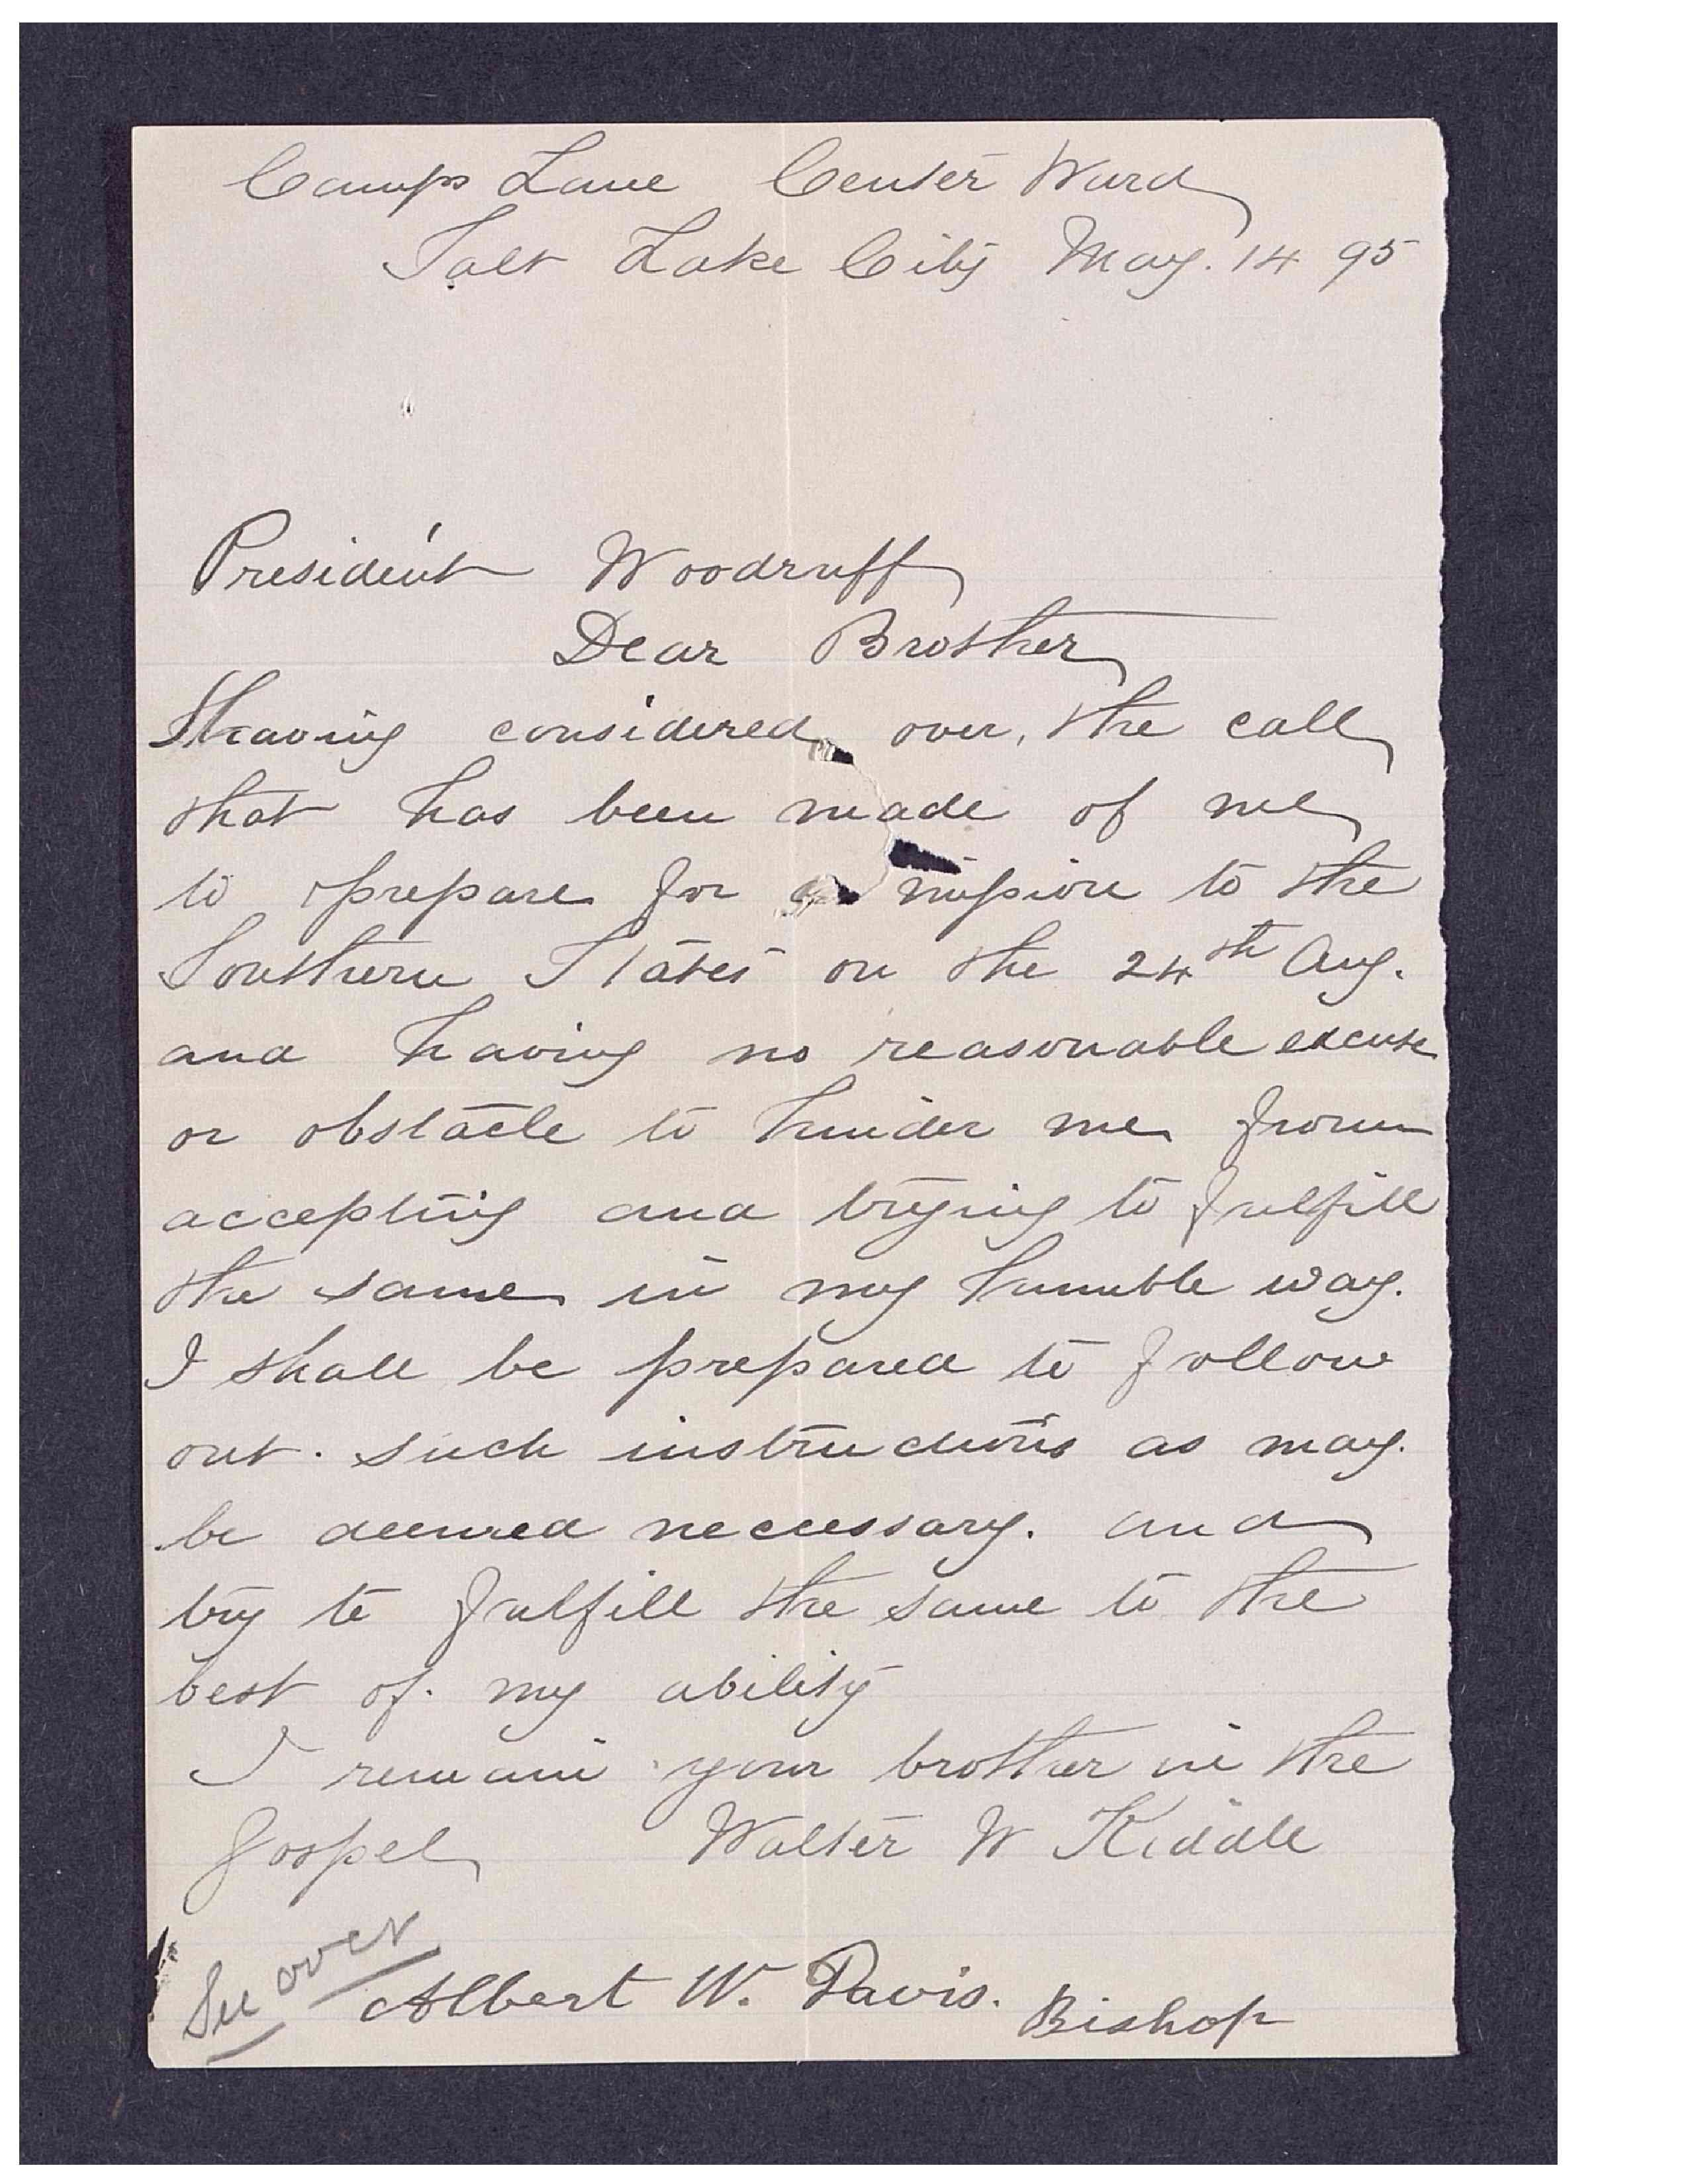 Camps Lane Center Ward
Salt Lake City May. 14 95
President Woodruff
Dear Brother
Having considered over, the call
that has been made of me
to prepare for a mission to the
Southern States on the 24th Aug.
and having no reasonable excuse
or obstacle to hinder me from
accepting and trying to fulfill
the same in my humble way.
I shall be prepared to follow
out. such instructions as may.
be deemed neccessary. and
try to fulfill the same to the
best of. my ability
I remain your brother in the
Gospel Walter W Kiddle
See over
Albert W. Davis. Bishop